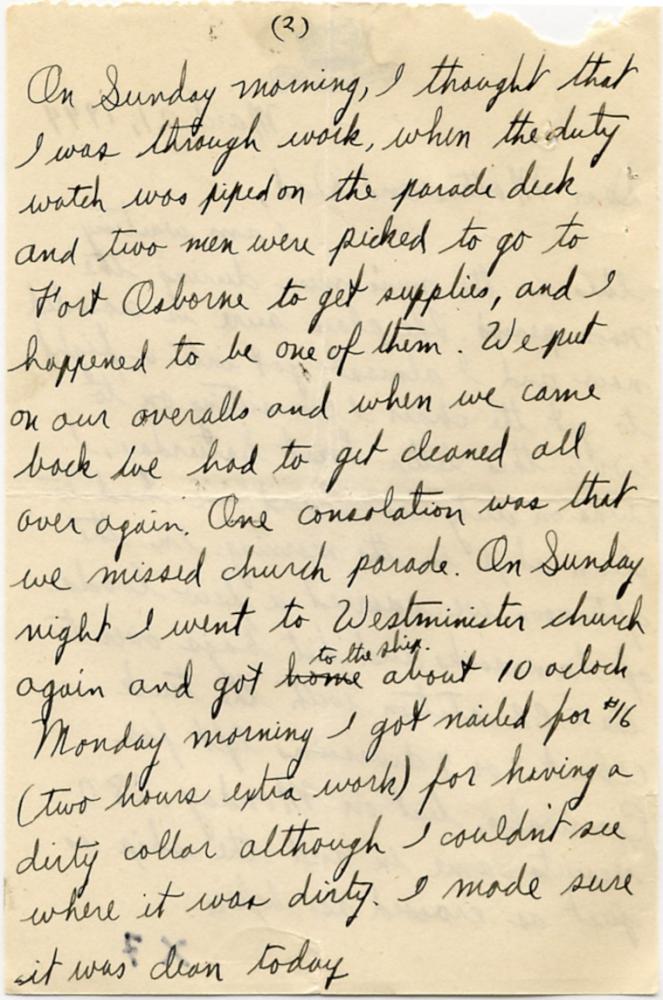 (2)
On Sunday morning, I thought that
I was through work, when the duty
watch was piped on the parade deck
and two men were picked to go to
Fort Osborne to get supplies, and I
happened to be one of them. We put
on our overalls and when we came
back we had to get cleaned all
over again. One consolation was that
we missed church parade. On Sunday
night I went to Westminister church
to the ship.
again and got home about 10 oclock
Monday morning I got nailed for #16
(two hours extra work) for having a
dirty collar although I couldn't see
where it was dirty. I made sure
it was clean today